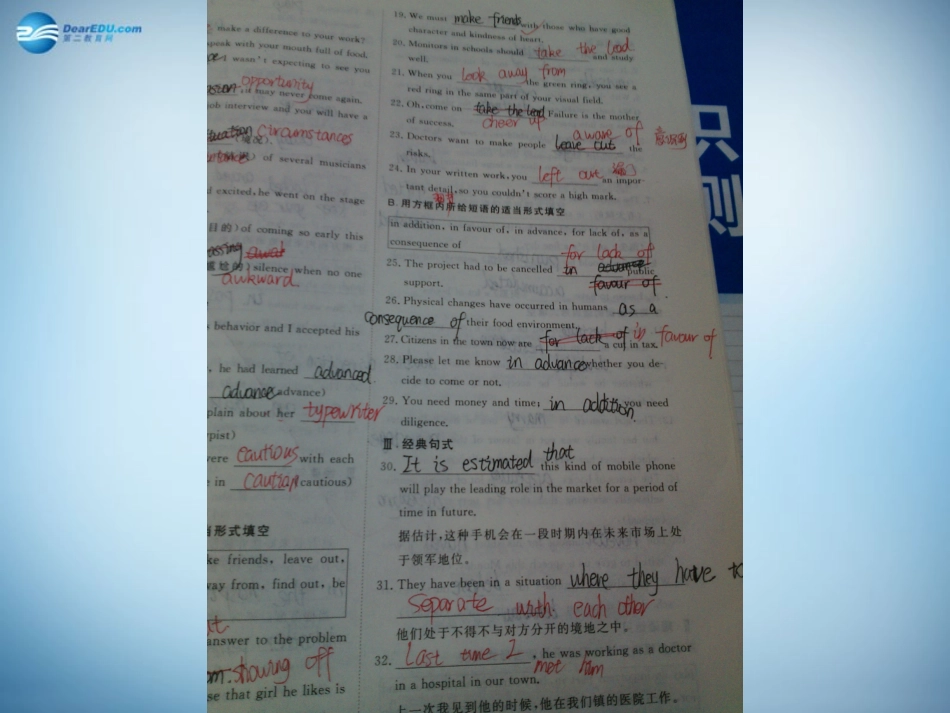 DearEDU.com
第二教育网
make a difference to your work?
speak with your mouth full of food.
I wasn't expecting to see you
opportunity
it may never come again.
job interview and you will have a
circumstances
(情况).
) of several musicians
d excited, he went on the stage
目的) of coming so early this
尴尬的) silence when no one
awkward.
behavior and I accepted his
, he had learned advanced
advance advance)
plain about her typewriter
pist)
were cautious with each
in caution cautious)
当形式填空
ke friends, leave out,
way from, find out, be
answer to the problem
showing off
se that girl he likes is
19. We must make friends with those who have good
character and kindness of heart.
20. Monitors in schools should take the lead and study
well.
21. When you look away from the green ring, you see a
red ring in the same part of your visual field.
22. Oh, come on take the lead Failure is the mother
of success. cheer up
23. Doctors want to make people leave out aware of the 意识到
risks.
24. In your written work, you left out an impor-
tant detail, so you couldn't score a high mark.
B. 用方框内所给短语的适当形式填空
in addition, in favour of, in advance, for lack of, as a
consequence of
for lack of
25. The project had to be cancelled in advance public
support. favour of
26. Physical changes have occurred in humans as a
consequence of their food environment.
27. Citizens in the town now are for lack of a cut in tax. in favour of
28. Please let me know in advance whether you de-
cide to come or not.
29. You need money and time; in addition, you need
diligence.
Ⅲ. 经典句式
30. It is estimated that this kind of mobile phone
will play the leading role in the market for a period of
time in future.
据估计,这种手机会在一段时期内在未来市场上处
于领军地位。
31. They have been in a situation where they have to
separate with each other
他们处于不得不与对方分开的境地之中。
32. Last time I met him, he was working as a doctor
in a hospital in our town.
上一次我见到他的时候,他在我们镇的医院工作。
只
则